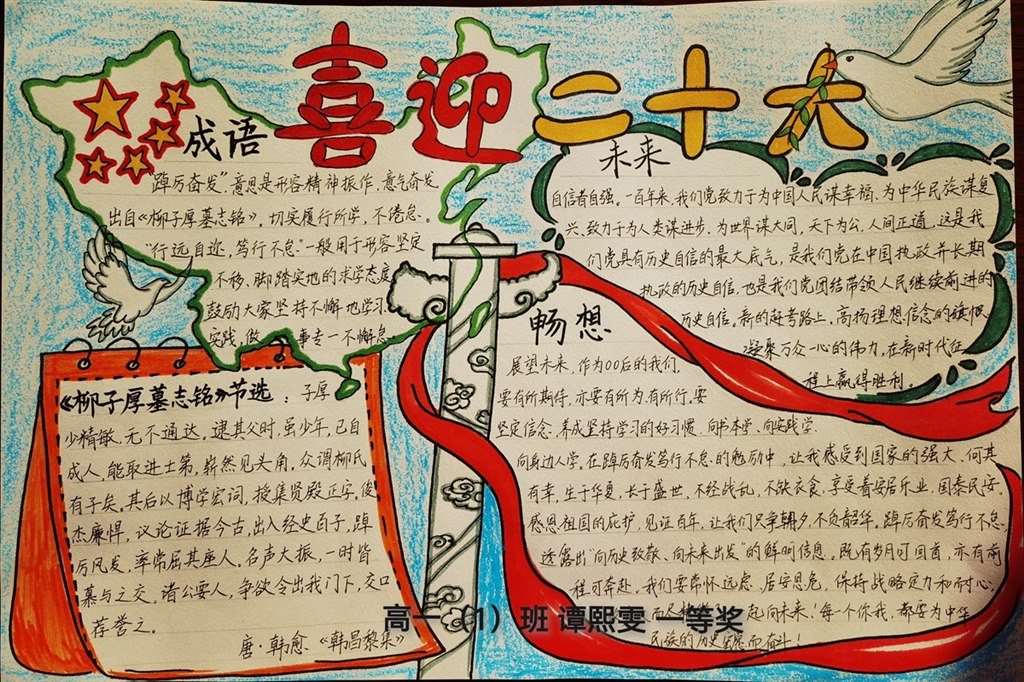 喜迎二十大
成语
"踔厉奋发"意思是形容精神振作,意气奋发
出自《柳子厚墓志铭》。切实履行所学,不倦怠。
"行远自迩,笃行不怠"一般用于形容坚定
不移、脚踏实地的求学态度
鼓励大家坚持不懈地学习、
实践,做 事专一不懈怠
《柳子厚墓志铭》节选:子厚
少精敏,无不通达,逮其父时,虽少年,已自
成人,能取进士第,崭然见头角。众谓柳氏
有子矣。其后以博学宏词,授集贤殿正字。俊
杰廉悍,议论证据今古,出入经史百子,踔
厉风发,率常屈其座人,名声大振,一时皆
慕与之交。诸公要人,争欲令出我门下,交口
荐誉之。
唐·韩愈《韩昌黎集》
未来
自信者自强。一百年来,我们党致力于为中国人民谋幸福、为中华民族谋复
兴,致力于为人类谋进步、为世界谋大同,天下为公,人间正道,这是我
们党具有历史自信的最大底气,是我们党在中国执政并长期
执政的历史自信,也是我们党团结带领人民继续前进的
历史自信。新的赶考路上,高扬理想信念的旗帜
凝聚万众一心的伟力,在新时代征
程上赢得胜利。
畅想
展望未来,作为00后的我们,
要有所期待,亦要有所为,有所行,要
坚定信念,养成坚持学习的好习惯,向书本学、向实践学、
向身边人学。在踔厉奋发笃行不怠的勉励中,让我感受到国家的强大、何其
有幸,生于华夏,长于盛世,不经战乱,不缺衣食,享受着安居乐业,国泰民安。
感恩祖国的庇护,见证百年,让我们只争朝夕,不负韶华。踔厉奋发笃行不怠
透露出"向历史致敬、向未来出发"的鲜明信息。既有岁月可回首,亦有前
程可奔赴,我们要常怀远虑、居安思危,保持战略定力和耐心
起向未来,每个你我,都要为中华
民族的历史 而奋斗!
高一(1)班 谭熙雯 一等奖